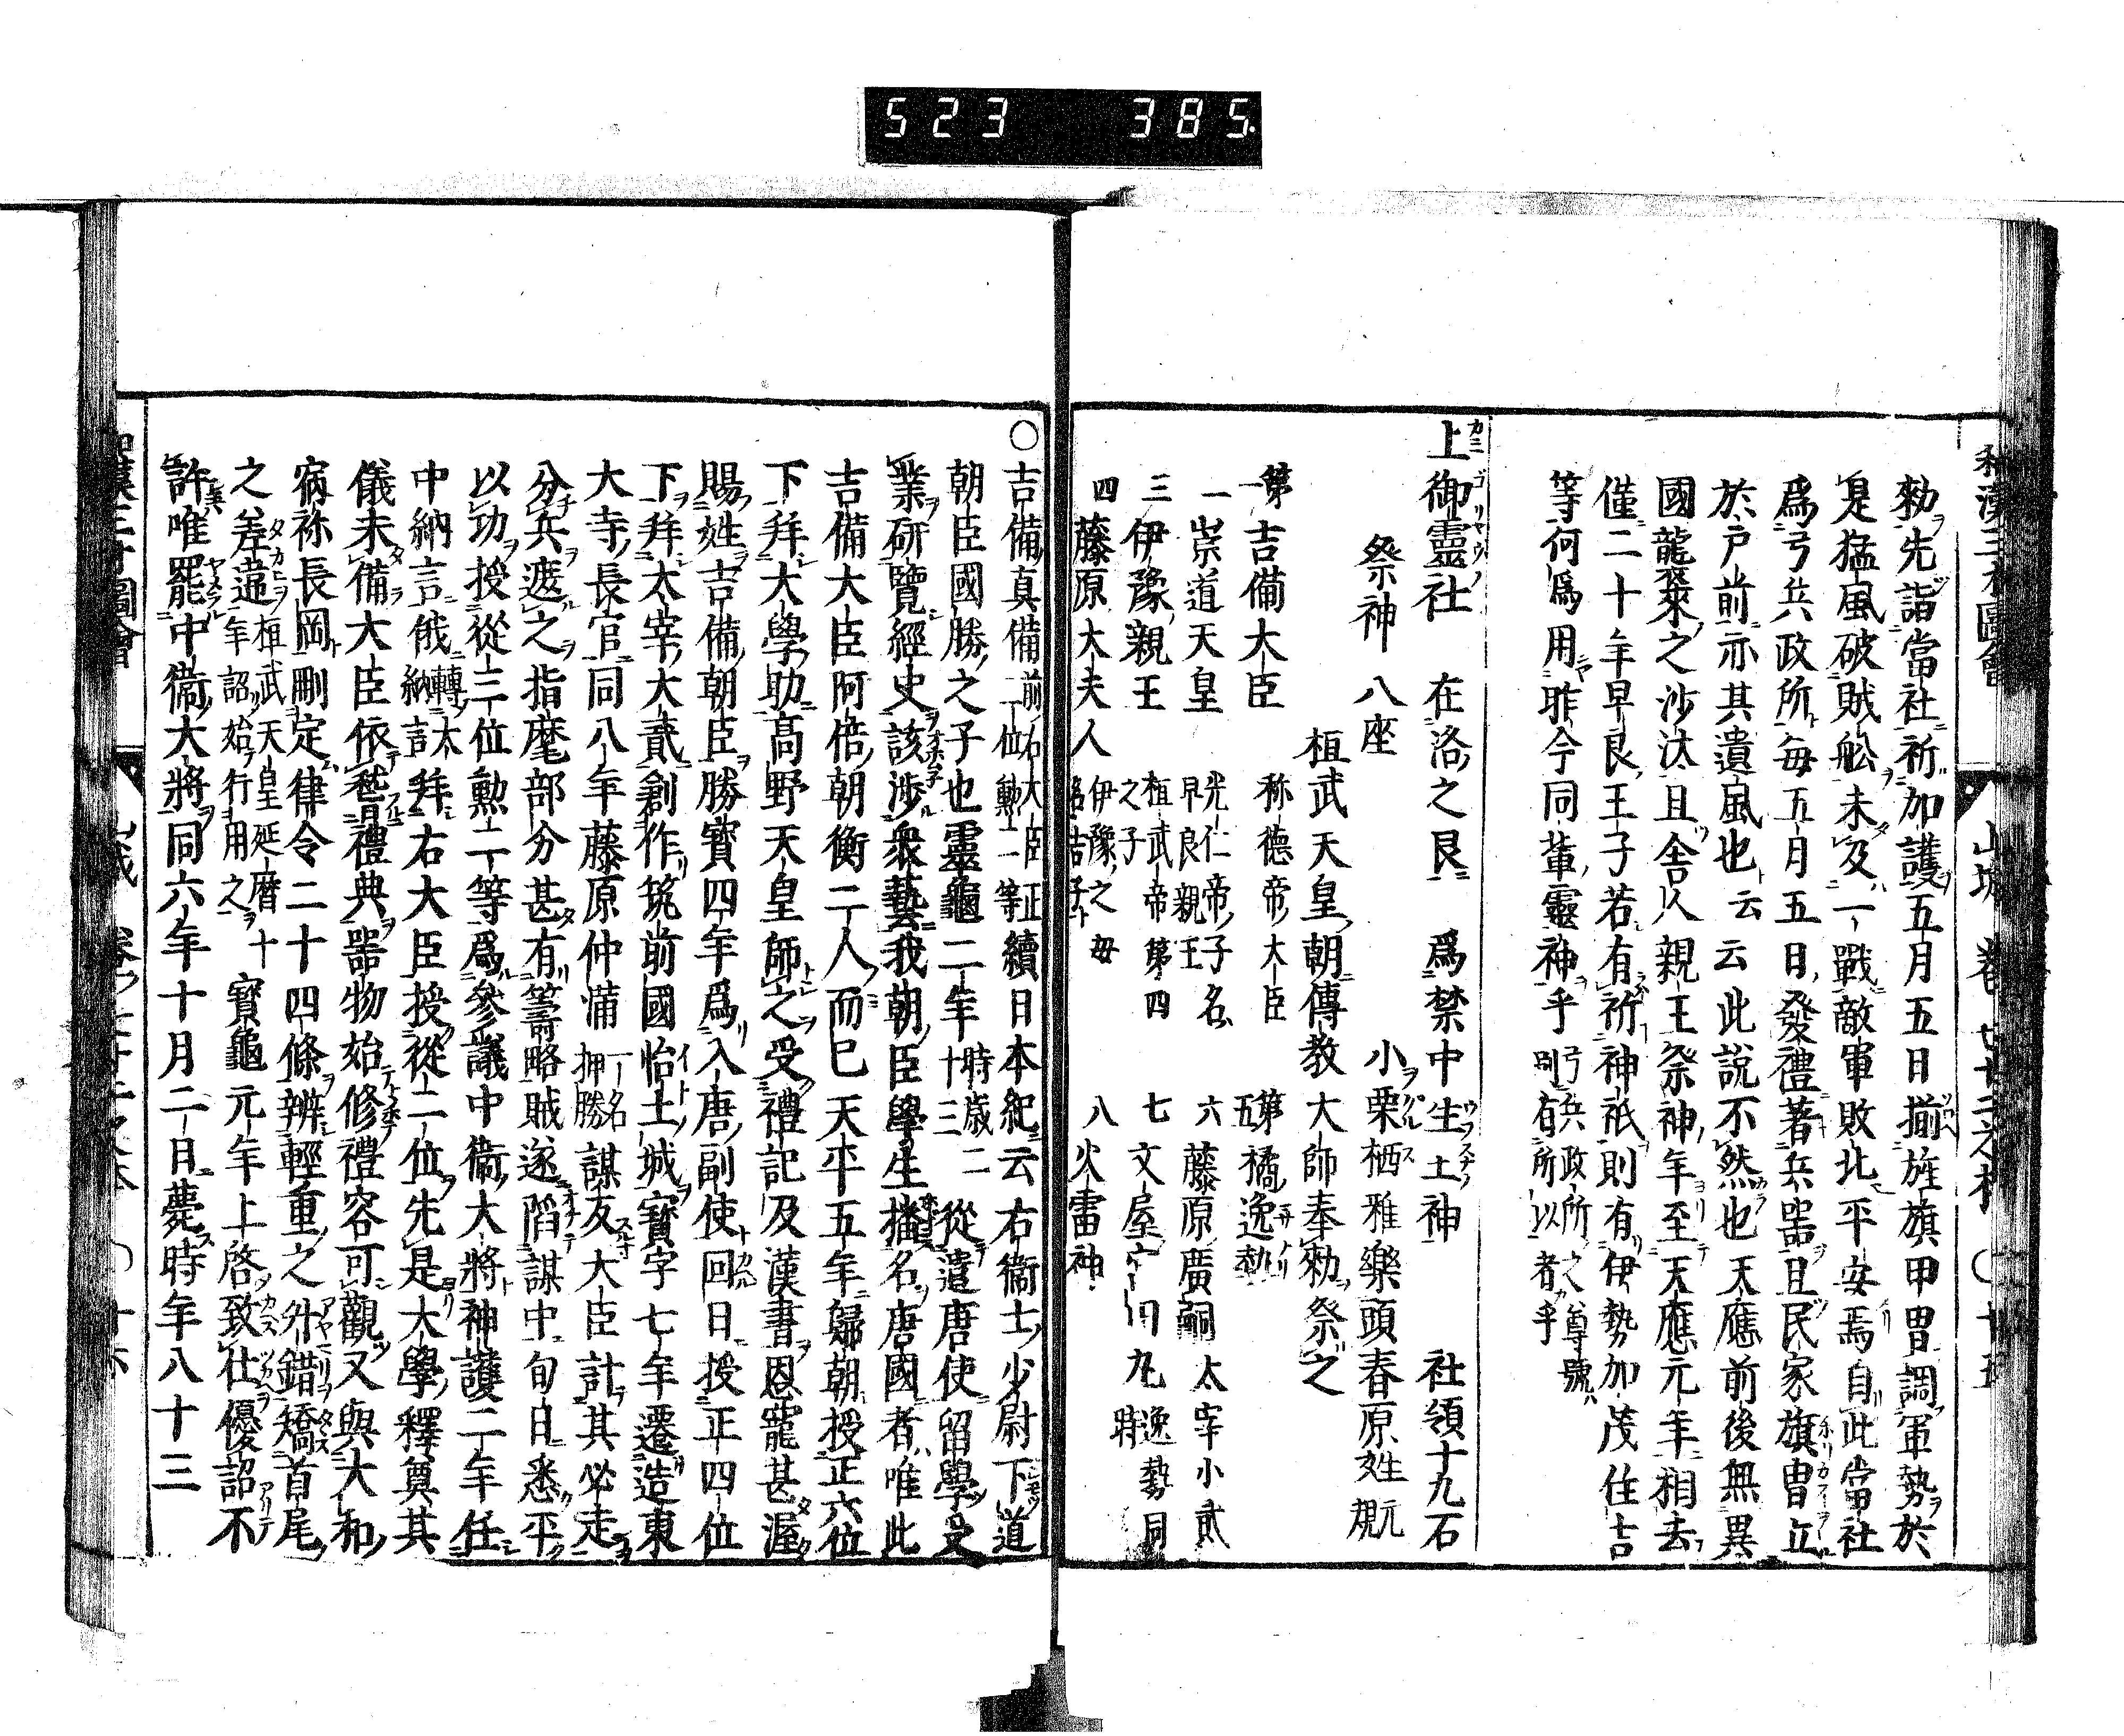 523 385.
和漢三才圖會 山城 卷七十二之本 ○ 十五
勑先詣當社祈加護五月五日揃旌旗甲冑調軍勢於
是猛風破賊舩未及一戰敵軍敗北平安焉自此當社
爲弓兵政所毎五月五日發禮著兵噐且民家旗冑立
於戸前亦其遺風也云云此說不然也天應前後無異
國龍乘之沙汰且舎人親王祭神年至天應元年相去
僅二十年早良王子若有祈神祇則有伊勢加茂住吉
等何爲用昨今同輩靈神乎 弓兵政所之尊號
則有所以者乎
上御靈社 在洛之艮 爲禁中生土神 社領十九石
祭神 八座 小栗栖雅樂頭春原姓元規
桓武天皇朝傳教大師奉勑祭之
第一 吉備大臣 称德帝大臣 第五 橘逸勢
二 崇道天皇 光仁帝子名
早良親王 六 藤原廣嗣 太宰小貳
三 伊豫親王 桓武帝第四
之子 七 文屋 九 逸勢同時
四 藤原大夫人 伊豫之母
名吉子 八 火雷神
○吉備真備 前右大臣正
二位勳二等 續日本紀云右衞士少尉下道
朝臣國勝之子也靈龜二年 時歳二
十三 從遣唐使留學受
業研覽經史該渉衆藝我朝臣學生播名唐國者唯此
吉備大臣阿倍朝衡二人而已天平五年歸朝授正六位
下拜大學助高野天皇師之受禮記及漢書恩寵甚渥
賜姓吉備朝臣勝寳四年爲入唐副使回日授正四位
下拜太宰大貳創作筑前國怡土城寳字七年遷造東
大寺長官同八年藤原仲滿 一名
押勝 謀反大臣計其必走
分兵遮之指麾部分甚有籌略賊遂陷謀中旬日悉平
以功授從三位勲二等爲參議中衞大將神護二年任
中納言俄 轉大
納言 拜右大臣授從二位先是大學釋奠其
儀未備大臣依稽禮典噐物始修禮容可觀又與大和
宿祢長岡刪定律令二十四條辨輕重之舛錯矯首尾
之差違 桓武天皇延暦十
年詔始行用之 寳龜元年上啓致仕優詔不
許唯罷中衞大將同六年十月二日薨時年八十三